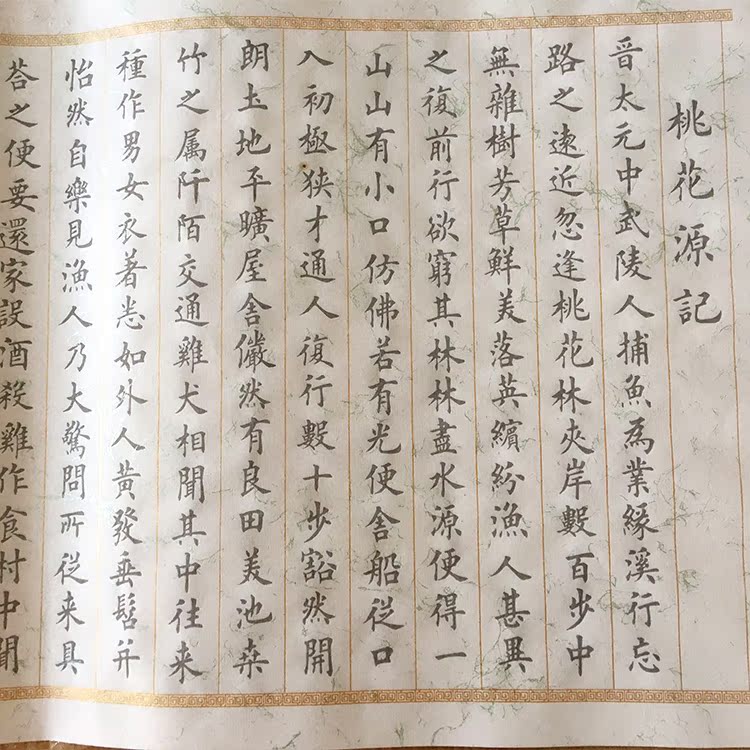 桃花源記
晋太元中武陵人捕魚為業緣溪行忘
路之遠近忽逢桃花林夾岸數百步中
無雜樹芳草鮮美落英繽紛漁人甚異
之復前行欲窮其林林盡水源便得一
山山有小口仿佛若有光便舍船從口
入初極狹才通人復行數十步豁然開
朗土地平曠屋舍儼然有良田美池桑
竹之属阡陌交通雞犬相聞其中往来
種作男女衣著悉如外人黃發垂髫并
怡然自樂見漁人乃大驚問所從来具
荅之便要還家設酒殺雞作食村中聞